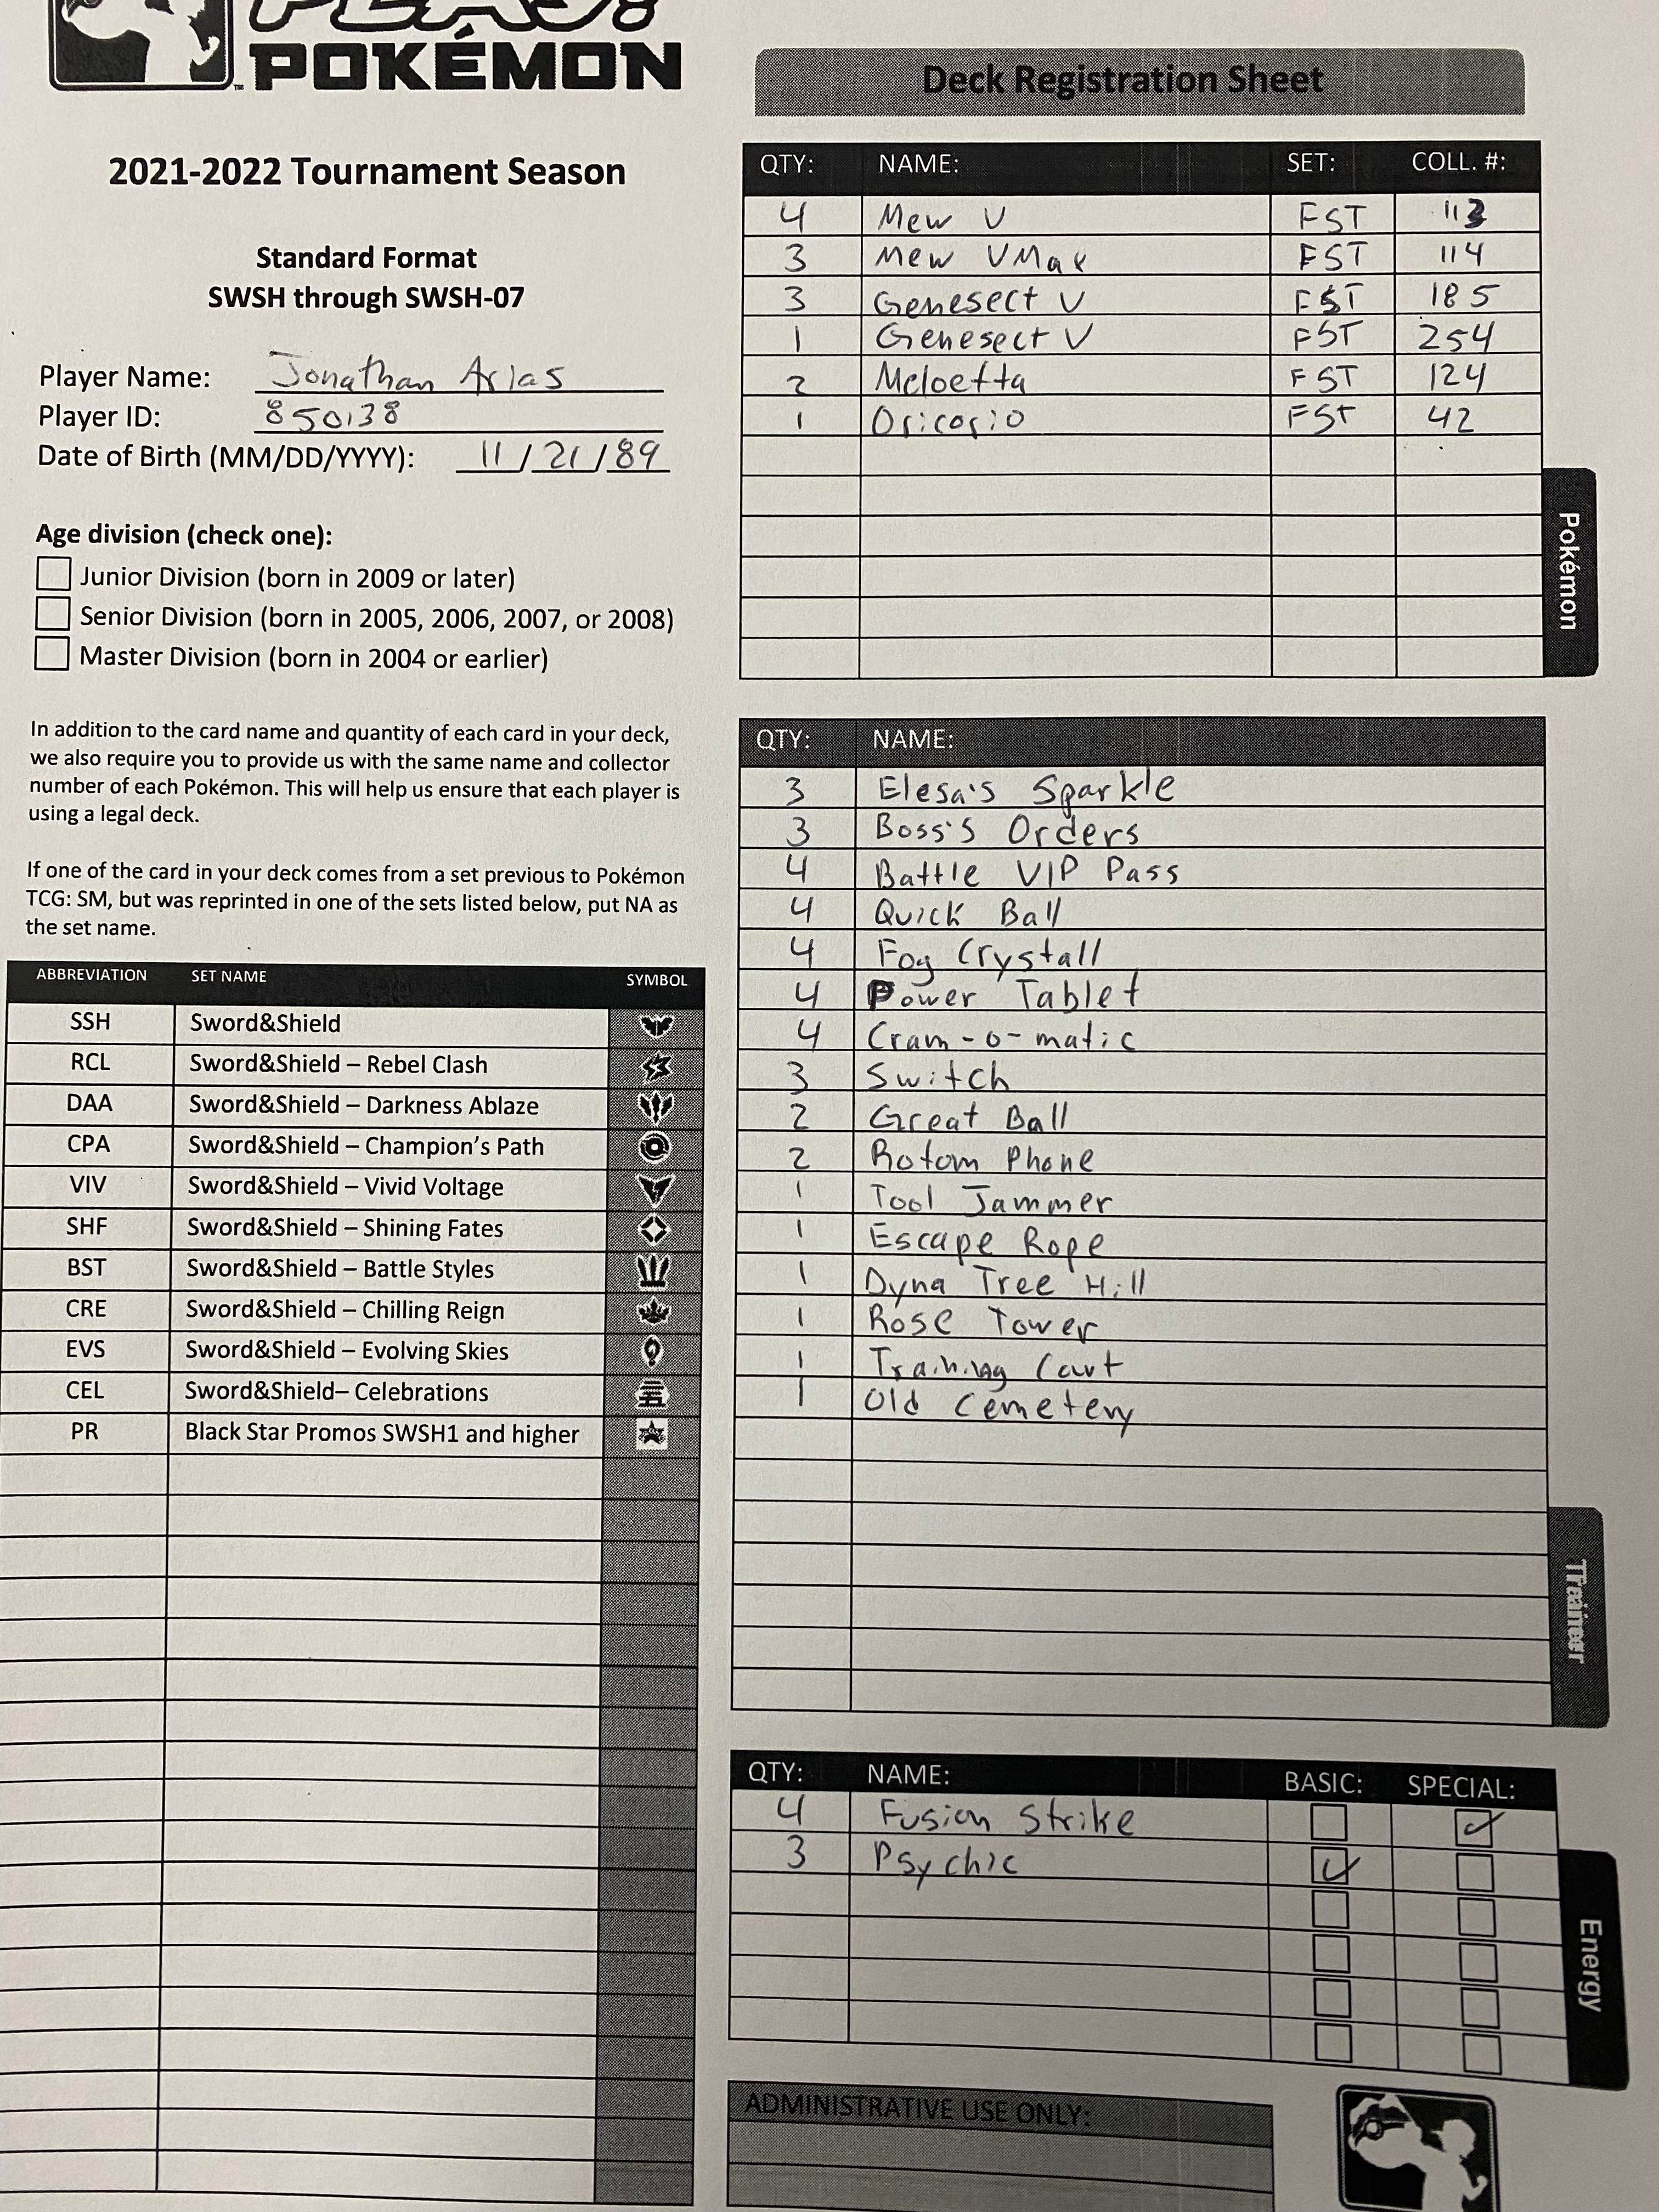 PLAY!
POKÉMON
2021-2022 Tournament Season
Standard Format
SWSH through SWSH-07
Player Name: Jonathan Arias
Player ID: 850138
Date of Birth (MM/DD/YYYY): 11/21/89
Age division (check one):
Junior Division (born in 2009 or later)
Senior Division (born in 2005, 2006, 2007, or 2008)
Master Division (born in 2004 or earlier)
In addition to the card name and quantity of each card in your deck,
we also require you to provide us with the same name and collector
number of each Pokémon. This will help us ensure that each player is
using a legal deck.
If one of the card in your deck comes from a set previous to Pokémon
TCG: SM, but was reprinted in one of the sets listed below, put NA as
the set name.
ABBREVIATION SET NAME SYMBOL
SSH Sword&Shield
RCL Sword&Shield – Rebel Clash
DAA Sword&Shield – Darkness Ablaze
CPA Sword&Shield – Champion's Path
VIV Sword&Shield – Vivid Voltage
SHF Sword&Shield – Shining Fates
BST Sword&Shield – Battle Styles
CRE Sword&Shield – Chilling Reign
EVS Sword&Shield – Evolving Skies
CEL Sword&Shield– Celebrations
PR Black Star Promos SWSH1 and higher
Deck Registration Sheet
QTY: NAME: SET: COLL. #:
4 Mew V FST 113
3 Mew VMax FST 114
3 Genesect V FST 185
1 Genesect V FST 254
2 Meloetta FST 124
1 Oricorio FST 42
Pokémon
QTY: NAME:
3 Elesa's Sparkle
3 Boss's Orders
4 Battle VIP Pass
4 Quick Ball
4 Fog Crystall
4 Power Tablet
4 Cram-o-matic
3 Switch
2 Great Ball
2 Rotom Phone
1 Tool Jammer
1 Escape Rope
1 Dyna Tree Hill
1 Rose Tower
1 Training Cout
1 Old Cemetery
Trainer
QTY: NAME: BASIC: SPECIAL:
4 Fusion Strike ✓
3 Psychic ✓
Energy
ADMINISTRATIVE USE ONLY: